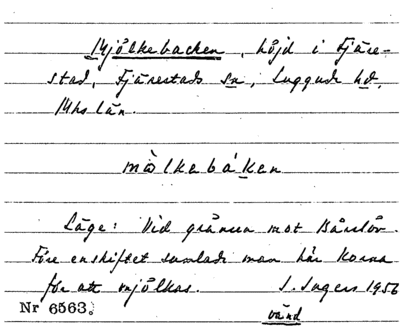 Mjölkebacken, höjd i Fjäre-
stad, Fjärestads sn, Luggude hd,
Mhs län.
mòlkebáken
Läge: Vid gränsen mot Bårslöv.
Före enskiftet samlade man här korna
för att mjölkas. I. Ingers 1956
Nr 6563. vänd